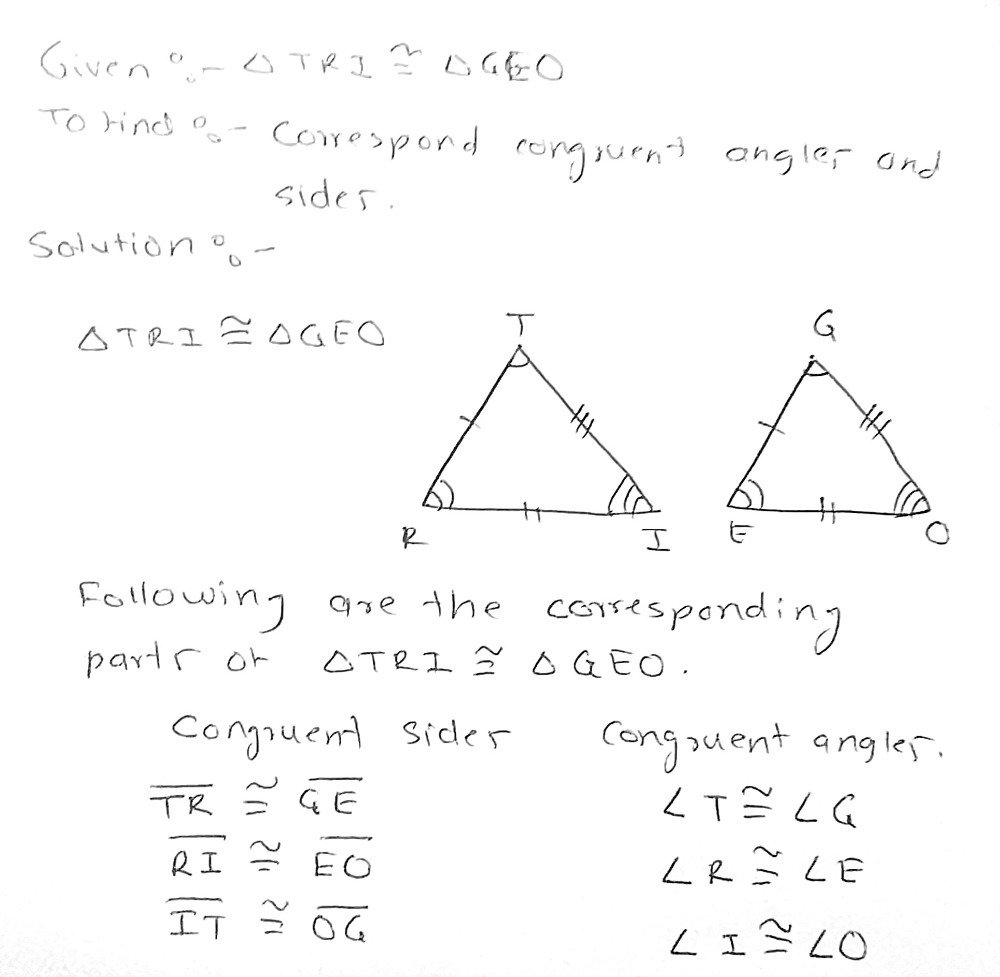 Given :- △TRI ≅ △GEO
To find :- Correspond congruent angles and
sides.
Solution :-
△TRI ≅ △GEO
T
G
R
I
E
O
Following are the corresponding
parts of △TRI ≅ △GEO.
Congruent sides
Congruent angles.
T̅R̅ ≅ G̅E̅
∠T ≅ ∠G
R̅I̅ ≅ E̅O̅
∠R ≅ ∠E
I̅T̅ ≅ O̅G̅
∠I ≅ ∠O